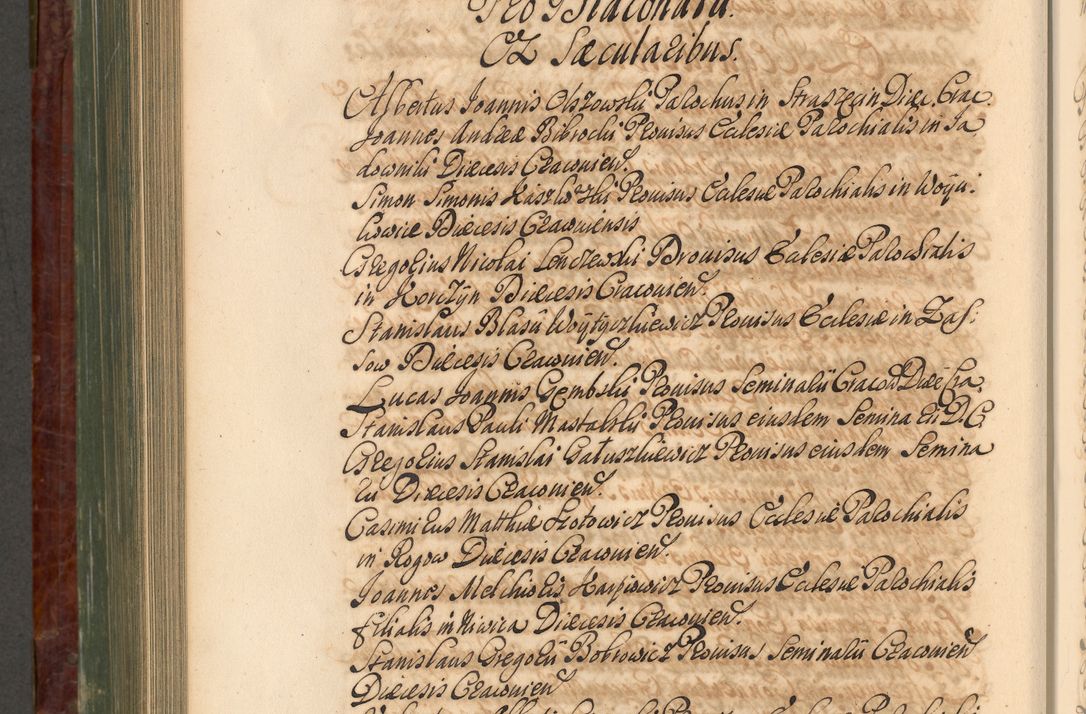 Pro Diaconatu.
Ex Sæcularibus.
Albertus Joannis Olszowski Parochus in Straszęcin Diæc. Crac.
Joannes Andreæ Bibrocki Provisus Ecclesiæ Parochialis in Ja
downiki Diæcesis Cracovien.
Simon Simonis Provisus Ecclesiæ Parochialis in Woyni
Diæcesis Cracoviensis
Gregorius Nicolai Lenczewski Provisus Ecclesiæ Parochialis
in Korczyn Diæcesis Cracovien.
Stanislaus Blasii Woytyczkiewicz Provisus Ecclesiæ in Zas:
sow Diæcesis Cracovien.
Lucas Joannis Gembski Provisus Seminarii Cracov. Diæc Cra.
Stanislaus Pauli Mastalski Provisus eiusdem Seminarii D. C
Gregorius Stanislai Gałuszkiewicz Provisus eiusdem Semina
rii Diæcesis Cracovien.
Casimirus Matthiæ Provisus Ecclesiæ Parochialis
in Rogow Diæcesis Cracovien.
Joannes Melchioris Karpiowicz Provisus Ecclesiæ Parochialis
filialis in Niwica Diæcesis Cracovien.
Stanislaus Gregorii Bobrowicz Provisus Seminarii Cracovien
Diæcesis Cracovien